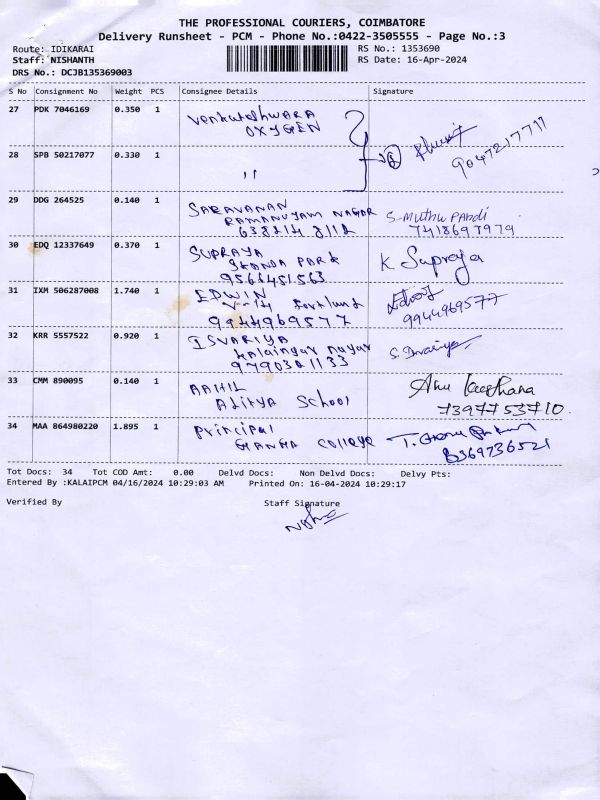 THE PROFESSIONAL COURIERS, COIMBATORE
Delivery Runsheet - PCM - Phone No.:0422-3505555 - Page No.:3
Route: IDIKARAI
RS No.: 1353690
Staff: NISHANTH
RS Date: 16-Apr-2024
DRS No.: DCJB135369003
S No Consignment No Weight PCS Consignee Details Signature
27 PDK 7046169 0.350 1 Venkateshwara
OXYGEN
9047217711
28 SPB 50217077 0.330 1 ,,
29 DDG 264525 0.140 1 SARAVANAN
RAMANUJAM NAGAR S-Muthu Pandi
638214 8112 7418697979
30 EDQ 12337649 0.370 1 SUPRAYA
SKANDA PARK K Supraya
9566451563
31 IXM 506287008 1.740 1 EDWIN
V-14 Forkland
9944969577 9944969577
32 KRR 5557522 0.920 1 ISVARIYA
Kalaingar nagar S.
9790301133
33 CMM 890095 0.140 1 AAHIL Anu
Aditya School 7397753710.
34 MAA 864980220 1.895 1 Principal
GANGA College T.
8369736521
Tot Docs: 34 Tot COD Amt: 0.00 Delvd Docs: Non Delvd Docs: Delvy Pts:
Entered By :KALAIPCM 04/16/2024 10:29:03 AM Printed On: 16-04-2024 10:29:17
Verified By Staff Signature